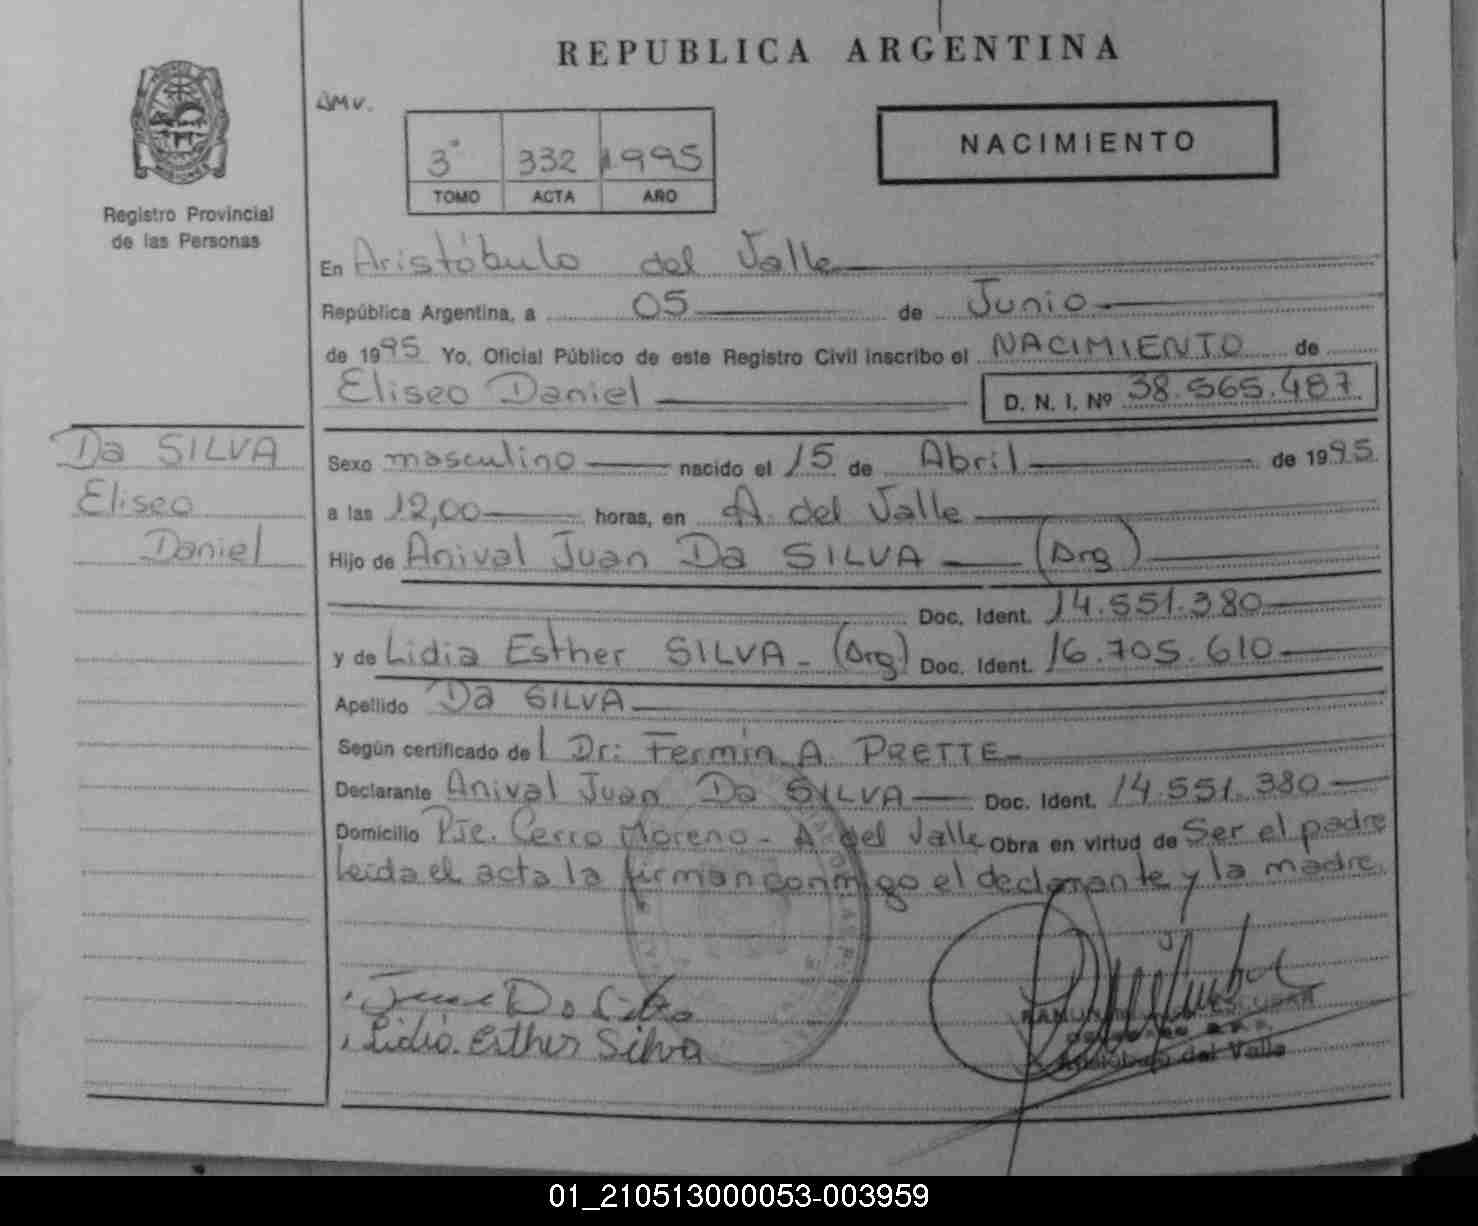 REPUBLICA ARGENTINA
AMV.
3° 332 1995
TOMO ACTA AÑO
NACIMIENTO
Registro Provincial
de las Personas
En Aristóbulo del Valle
República Argentina, a 05 de Junio
de 1995 Yo, Oficial Público de este Registro Civil inscribo el NACIMIENTO de
Eliseo Daniel D. N. I. Nº 38.565.487
Da SILVA
Eliseo
Daniel
Sexo masculino nacido el 15 de Abril de 1995
a las 12,00 horas, en A. del Valle
Hijo de Anival Juan Da SILVA (Arg)
Doc. Ident. 14.551.380
y de Lidia Esther SILVA - (Arg) Doc. Ident. 16.705.610
Apellido Da SILVA
Según certificado de l Dr: Fermín A. PRETTE
Declarante Anival Juan Da SILVA Doc. Ident. 14.551.380
Domicilio Pje. Cerro Moreno - A del Valle Obra en virtud de Ser el padre
leída el acta la firman conmigo el declarante y la madre.
Juan Da Silva
Lidia Esther Silva
ESCOBAR
Aristóbulo del Valle
01_210513000053-003959